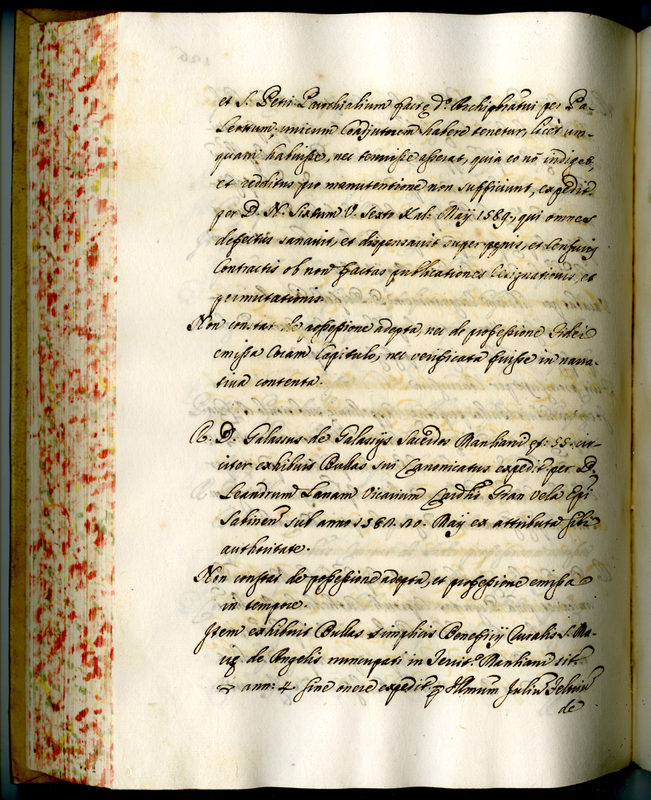 et S. Petri Parochialium factę Dº. Archipbratui per Pa-
Lentium, unicum Coadjutorem habere tenetur, licet un-
quam habuisse, nec tenuisse asserat, quia eo nõ indiget,
et redditus pro manutentione non sufficiunt, expedit.
per D. N. Sixtum V. Sexto Kal: Maij 1589., qui omnes
defectus sanavit, et dispensavit super penis, et Censuris
Contractis ob non factas publicationes resignationis, et
permutationis.
Non constat de possessione adepta, nec de professione Fidei
emissa Coram Capitulo, nec verificata fuisse in narra-
tiva contenta.
R. D. Galassus de Galassijs Sacerdos Manliani et: 55. cir-
citer exhibuit Bullas sui Canonicatus expedit. per D.
Leandrum Lanam Vicarium Cardlis Gran Vela Epi
Sabinen sub anno 158 20. Maij ex attributa sibi
authoritate.
Non constat de possessione adepta, et professione emissa
in tempore.
Item exhibuit Bullas simplicis Beneficij Curalis S. Ma-
rię de Angelis nuncupati in Territ.º Manliani sit.
ann: 4 sine onere expedit. p Illmum Julium
de